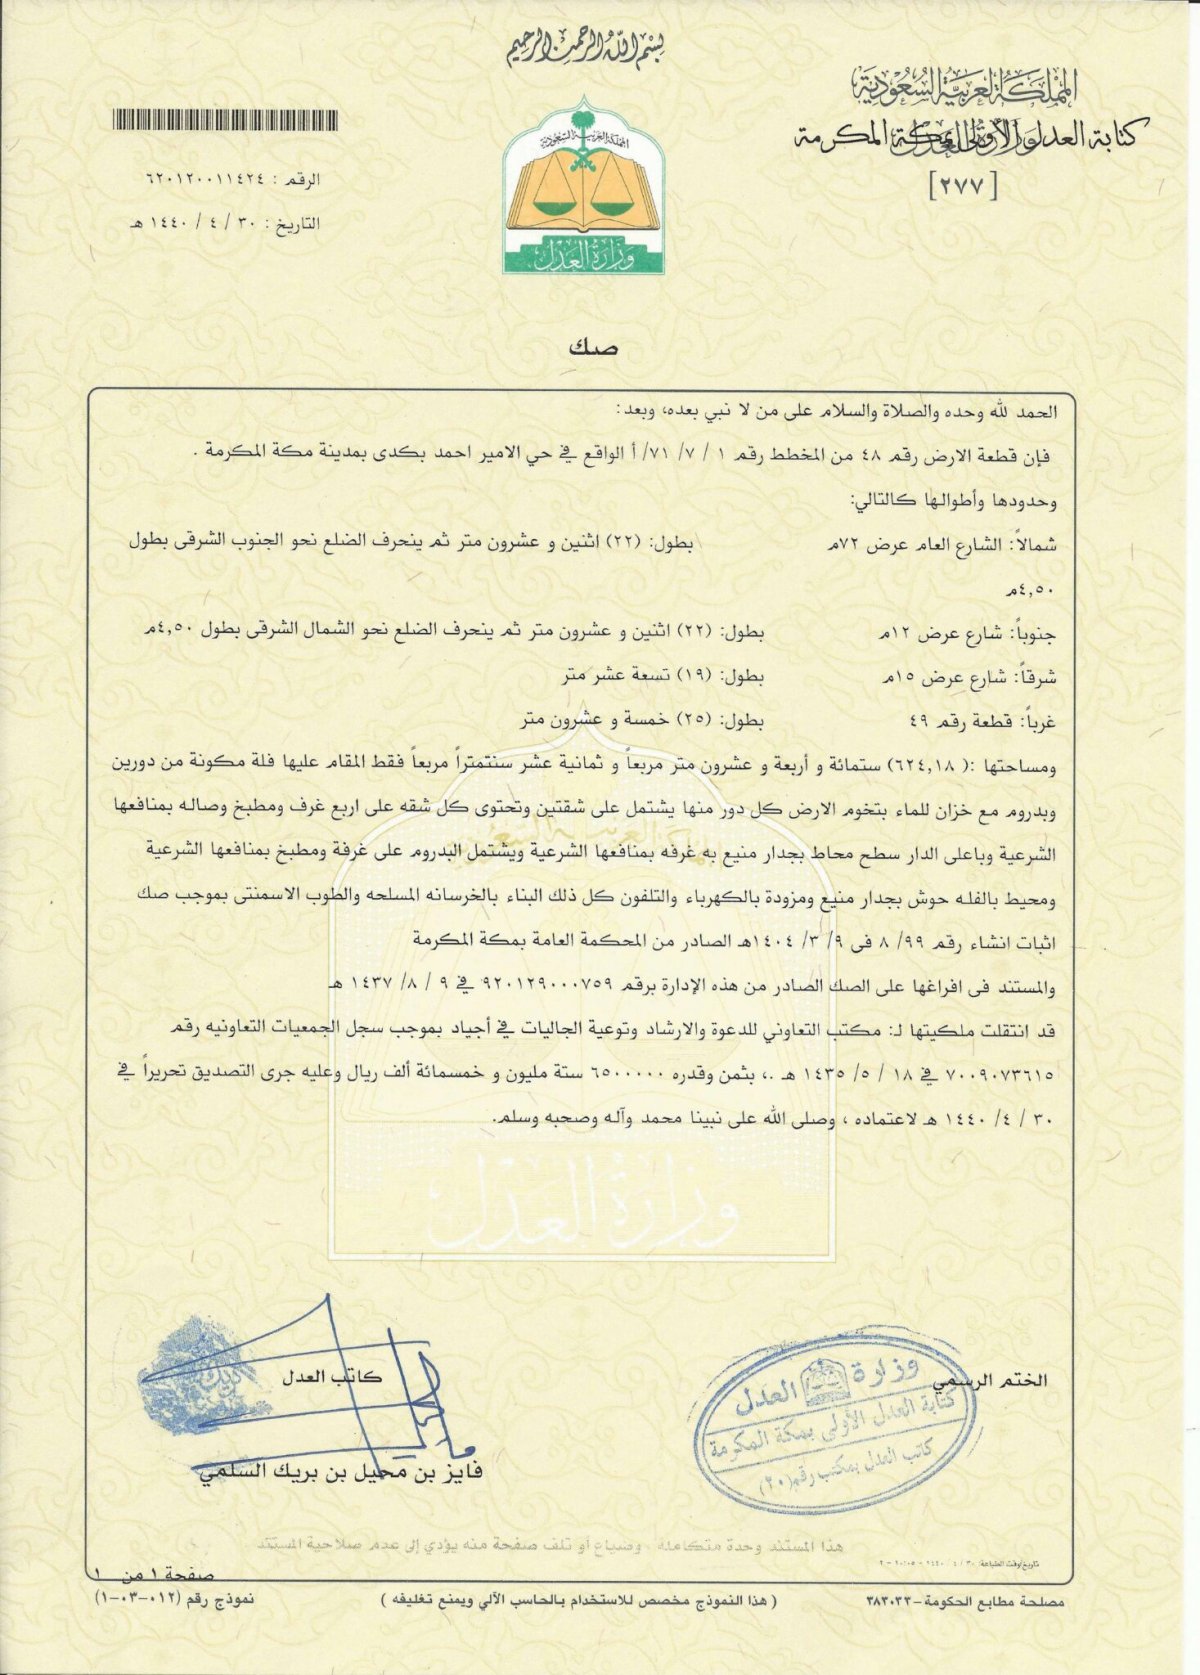 بسم الله الرحمن الرحيم
المملكة العربية السعودية
وزارة العدل
كتابة العدل الأولى بمكة المكرمة
[٢٧٧]
الرقم : ٦٢٠١٢٠٠١١٤٢٤
التاريخ : ٣٠ / ٤ / ١٤٤٠ هـ
المملكة العربية السعودية
وزارة العدل
صك
الحمد لله وحده والصلاة والسلام على من لا نبي بعده، وبعد:
فإن قطعة الارض رقم ٤٨ من المخطط رقم ١ / ٧ / ٧١/ أ الواقع في حي الامير احمد بكدى بمدينة مكة المكرمة .
وحدودها وأطوالها كالتالي:
شمالاً: الشارع العام عرض ٧٢م بطول: (٢٢) اثنين و عشرون متر ثم ينحرف الضلع نحو الجنوب الشرقى بطول
٤,٥٠م
جنوباً: شارع عرض ١٢م بطول: (٢٢) اثنين و عشرون متر ثم ينحرف الضلع نحو الشمال الشرقى بطول ٤,٥٠م
شرقاً: شارع عرض ١٥م بطول: (١٩) تسعة عشر متر
غرباً: قطعة رقم ٤٩ بطول: (٢٥) خمسة و عشرون متر
ومساحتها :( ٦٢٤,١٨) ستمائة و أربعة و عشرون متر مربعاً و ثمانية عشر سنتمتراً مربعاً فقط المقام عليها فلة مكونة من دورين
وبدروم مع خزان للماء بتخوم الارض كل دور منها يشتمل على شقتين وتحتوى كل شقه على اربع غرف ومطبخ وصاله بمنافعها
الشرعية وباعلى الدار سطح محاط بجدار منيع به غرفه بمنافعها الشرعية ويشتمل البدروم على غرفة ومطبخ بمنافعها الشرعية
ومحيط بالفله حوش بجدار منيع ومزودة بالكهرباء والتلفون كل ذلك البناء بالخرسانه المسلحه والطوب الاسمنتى بموجب صك
اثبات انشاء رقم ٩٩/ ٨ فى ٩/ ٣/ ١٤٠٤هـ الصادر من المحكمة العامة بمكة المكرمة
والمستند فى افراغها على الصك الصادر من هذه الإدارة برقم ٩٢٠١٢٩٠٠٠٧٥٩ في ٩ / ٨/ ١٤٣٧ هـ
قد انتقلت ملكيتها لـ: مكتب التعاوني للدعوة والارشاد وتوعية الجاليات في أجياد بموجب سجل الجمعيات التعاونيه رقم
٧٠٠٩٠٧٣٦١٥ في ١٨ / ٥/ ١٤٣٥ هـ ،. بثمن وقدره ٦٥٠٠٠٠٠ ستة مليون و خمسمائة ألف ريال وعليه جرى التصديق تحريراً في
٣٠ / ٤/ ١٤٤٠ هـ لاعتماده ، وصلى الله على نبينا محمد وآله وصحبه وسلم.
وزارة العدل
الختم الرسمي
وزارة العدل
كتابة العدل الأولى بمكة المكرمة
كاتب العدل بمكتب رقم (٢٠)
كاتب العدل
فايز بن محيل بن بريك السلمي
هذا المستند وحدة متكاملة ، وضياع أو تلف صفحة منه يؤدي إلى عدم صلاحية المستند
صفحة ١ من ١
مصلحة مطابع الحكومة – ٣٨٣٠٣٣
( هذا النموذج مخصص للاستخدام بالحاسب الآلي ويمنع تغليفه )
نموذج رقم (٠١٢-٠٣-١)